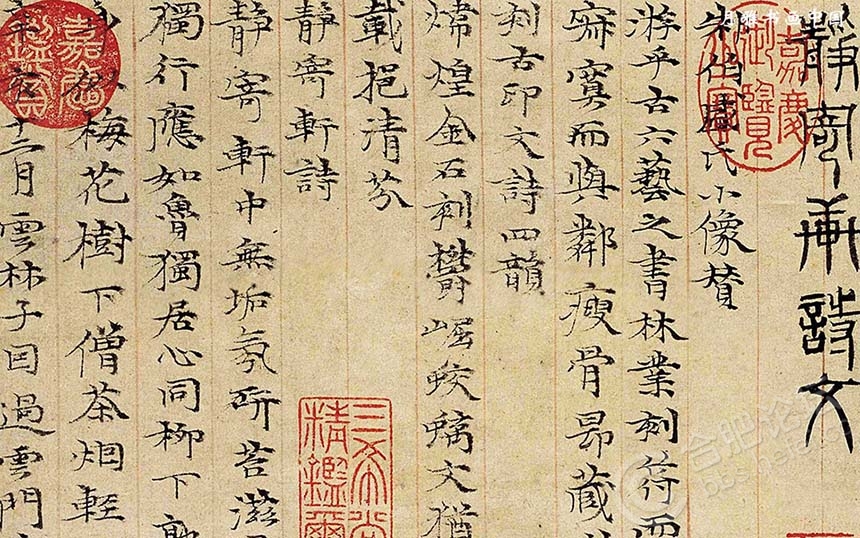 靜寄軒詩文
朱伯盛氏小像賛
游乎古六藝之書林業刻符而
寂寞而與鄰瘦骨昻藏
刻古印文詩四韻
煒煌金石刻欝崛蛟螭文猶
載挹清芬
靜寄軒詩
靜寄軒中無垢氛研苔滋
獨行應如魯獨居心同柳下
梅花樹下僧茶烟輕
十二月雲林子因過雲門
嘉慶御覽
三希堂
精鑑璽
书画中国
合肥论坛